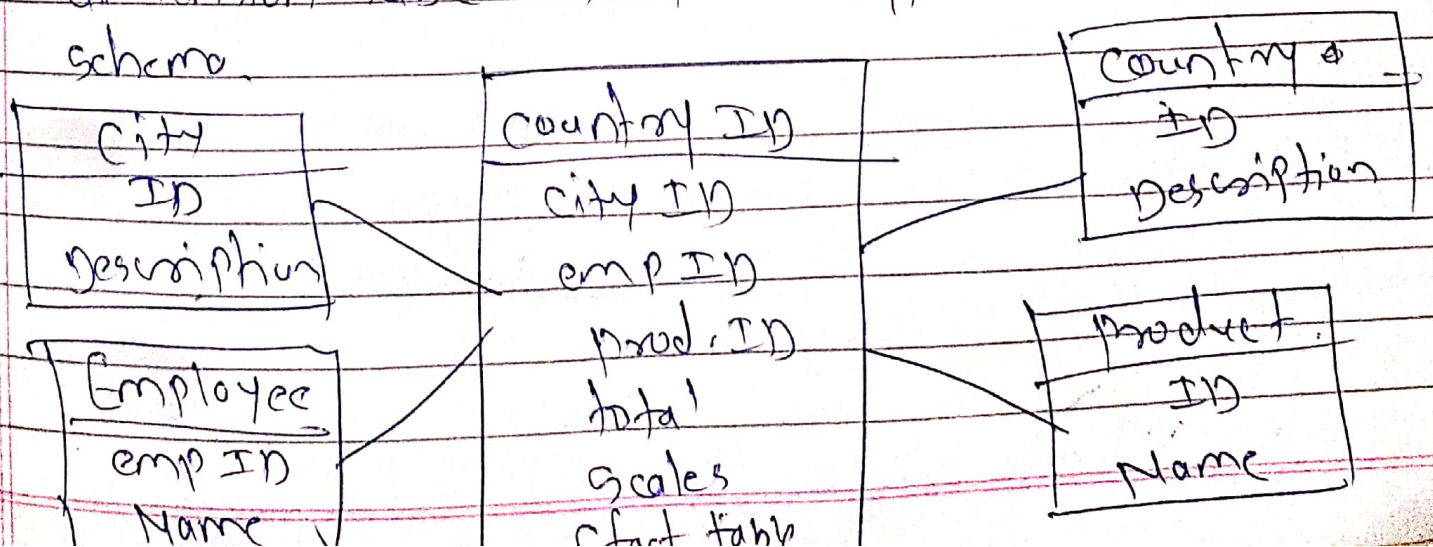 schema
City
ID
Description
Employee
emp ID
Name
Country ID
City ID
emp ID
prod. ID
total
scales
Country
ID
Description
product.
ID
Name